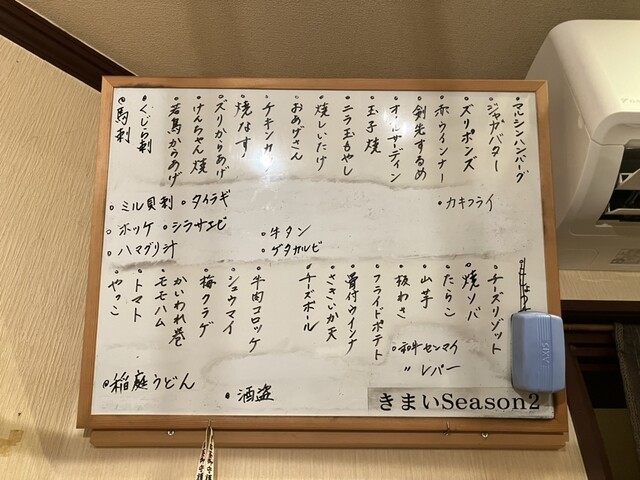 マルシンハンバーグ
ジャガバター
ズリポンズ
赤ウインナー
剣先するめ
オイルサーディン
玉子焼
ニラ玉もやし
焼しいたけ
おあげさん
チキンカツ
焼なす
ズリからあげ
けんちゃん焼
若鳥からあげ
くじら刺
馬刺
カキフライ
ミル貝刺
タイラギ
ホッケ
シラサエビ
ハマグリ汁
牛タン
ゲタカルビ
チーズリゾット
焼ソバ
たらこ
山芋
板わさ
フライドポテト
骨付ウインナ
ささいか天
チーズボール
牛肉コロッケ
シュウマイ
梅クラゲ
かいわれ巻
モモハム
トマト
やっこ
和牛センマイ
〃 レバー
稲庭うどん
酒盗
きまいSeason2